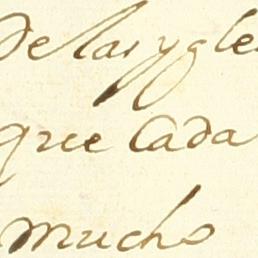 De las ygle
que Cada
mucho